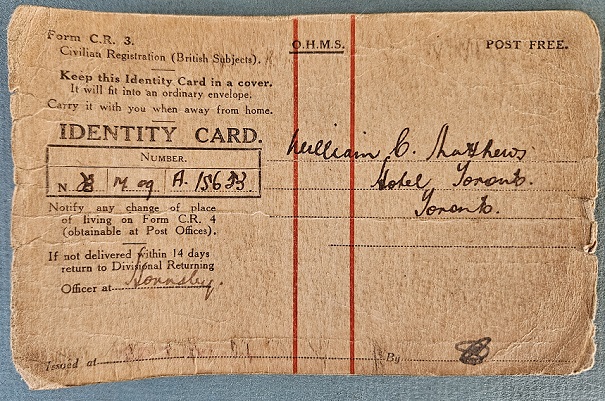 Form C.R. 3. O.H.M.S. POST FREE.
Civilian Registration (British Subjects).
Keep this Identity Card in a cover.
It will fit into an ordinary envelope.
Carry it with you when away from home.
IDENTITY CARD.
NUMBER.
N A. 15633
William C. Matthews
Hotel Toronto.
Toronto.
Notify any change of place
of living on Form C.R. 4
(obtainable at Post Offices).
If not delivered within 14 days
return to Divisional Returning
Officer at Hornsby.
Issued at By